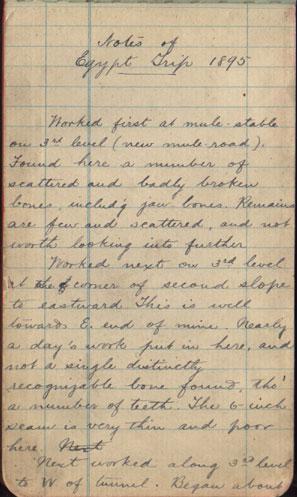 Notes of
Egypt Trip 1895
Worked first at mule-stable
on 3rd level (new mule-road).
Found here a number of
scattered and badly broken
bones, includ'g jaw bones. Remains
are few and scattered, and not
worth looking into further
Worked next on 3rd level
at the corner of second slope
to eastward This is well
towards E. end of mine. Nearly
a day's work put in here, and
not a single distinctly
recognizable bone found, tho'
a number of teeth. The 6-inch
seam is very thin and poor
here. Next
Next worked along 3rd level
to W of tunnel. Began about